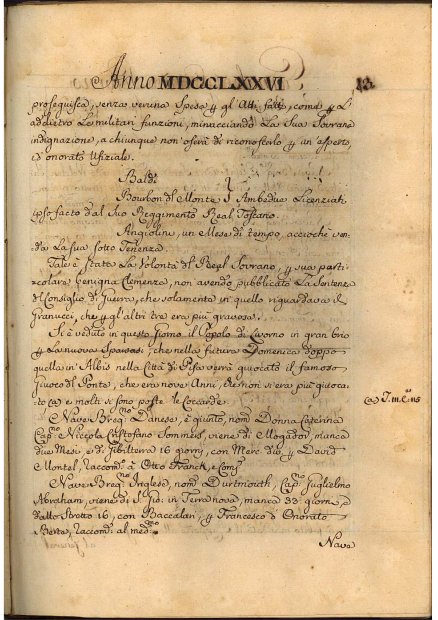 Anno MDCCLXXVI
proseguisca, senza veruna Spesa p gl'Atti fatti, come p l'
addietro le militari funzioni, minacciando la Sua Sovrana
indignazione, a chiunque non oserà di riconoscerlo p un'esperto,
ed onorato Ufiziale.
Baldi
Bourbon dl Monte } Ambedue Licenziati
ipso facto dal Suo Reggimento Real Toscano.
un Mese di tempo, acciochè ven-
da la sua sotto Tenenza.
Tale è stata la Volontà dl Real Sovrano, p sua parti-
colare benigna Clemenza, non avendo pubblicata la Sentenza
dl Consiglio di Guerra, che solamente in quello riguardava il
Granucci, che p gl'altri tre era più gravosa.
Si è veduto in questo Giorno il Popolo di Livorno in gran brio
p la nuova Sparsasi, che nella futura Domenica doppo
quella in Albis nella Città di Pisa verrà giuocato il famoso
Giuoco dl Ponte, che era nove Anni, che non si era più giuoca-
to (a) e molti si sono poste le Coccarde.
(a)
Nave Danese, è giunto, nom Donna Caterina
Cap Niccola Cristofano viene di Mogador, manca
due Mesi e di Gibilterra 16 giorni, con Merc div p David
Montel, raccom a Otto Franck, e Comp
Nave Inglese, nom Durtmouth, Cap Guglielmo
Abraham, viene di S in Terra nova, manca 39 giorni, e
dallo Stretto 16, con Baccalari, p Francesco d'Onorato
Berte, raccom al med
Nave